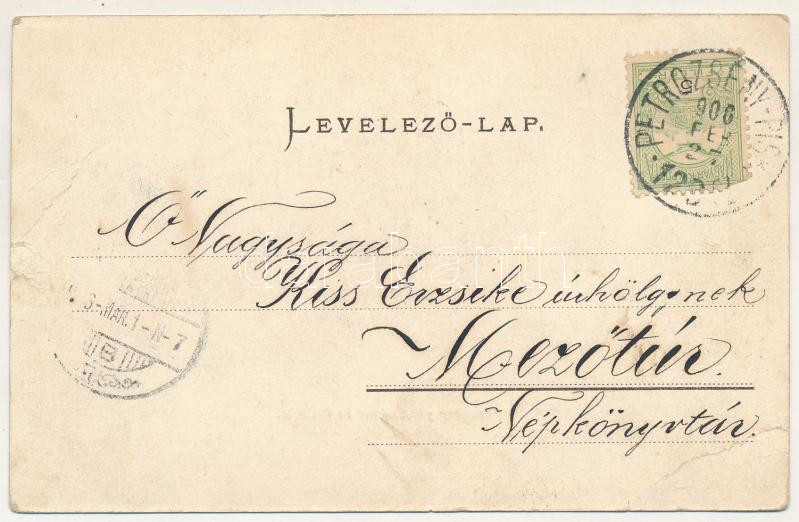 LEVELEZŐ-LAP.
PETROZSÉNY-PIS
908
FEB
Ő Nagysága
Kiss Erzsike úrhölgynek
Mezőtúr.
Népkönyvtár.
MAR. 1-N-7